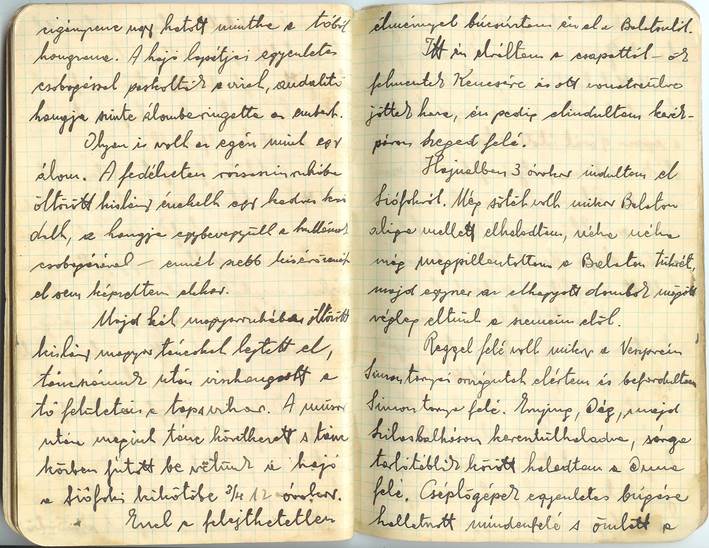 cigányzene úgy hatott mintha a túlvil
hangzana. A hajó lapátjai egyenletes
csobogással paskolták a vizet, andalító
hangja szinte álomba ringatta az embert.
Olyan is volt az egész mint egy
álom. A fedélzeten rózsaszin ruhába
öltözött kislány énekelt egy kedves kis
dalt, s hangja egybevegyült a hullámok
csobogásával – ennél szebb kiséretet
el sem képzeltem akkor.
Majd két magyarruhába öltözött
kislány magyar táncokat lejtett el,
táncszámuk után visszhangzott a
tó felületén a tapsvihar. A műsor
után megint tánc következett s tánc
közben futott be velünk a hajó
a siófoki kikötőbe 3/4 12 órakor.
Ezzel a felejthetetlen
élménnyel búcsúztam én el a Balatontól.
Itt én elváltam a csapattól – ők
felmentek Kenesére és ott vonatra ülve
jöttek haza, én pedig elindultam kerék-
páron Szeged felé.
Hajnalban 3 órakor indultam el
Siófokról. Még sötét volt mikor Balaton
aliga mellett elhaladtam, néha néha
még megpillantottam a Balaton tükrét,
majd egyszer az elhagyott dombok mögött
végleg eltünt a szemeim elől.
Reggel felé volt mikor a Veszprém
Simontornyai országutat elértem és befordultam
Simontornya felé. Enying, Dég, majd
Szilasbalháson keresztülhaladva, sárga
tarlótáblák között haladtam a Duna
felé. Cséplőgépek egyenletes búgása
hallatszott mindenfelé s ömlött a